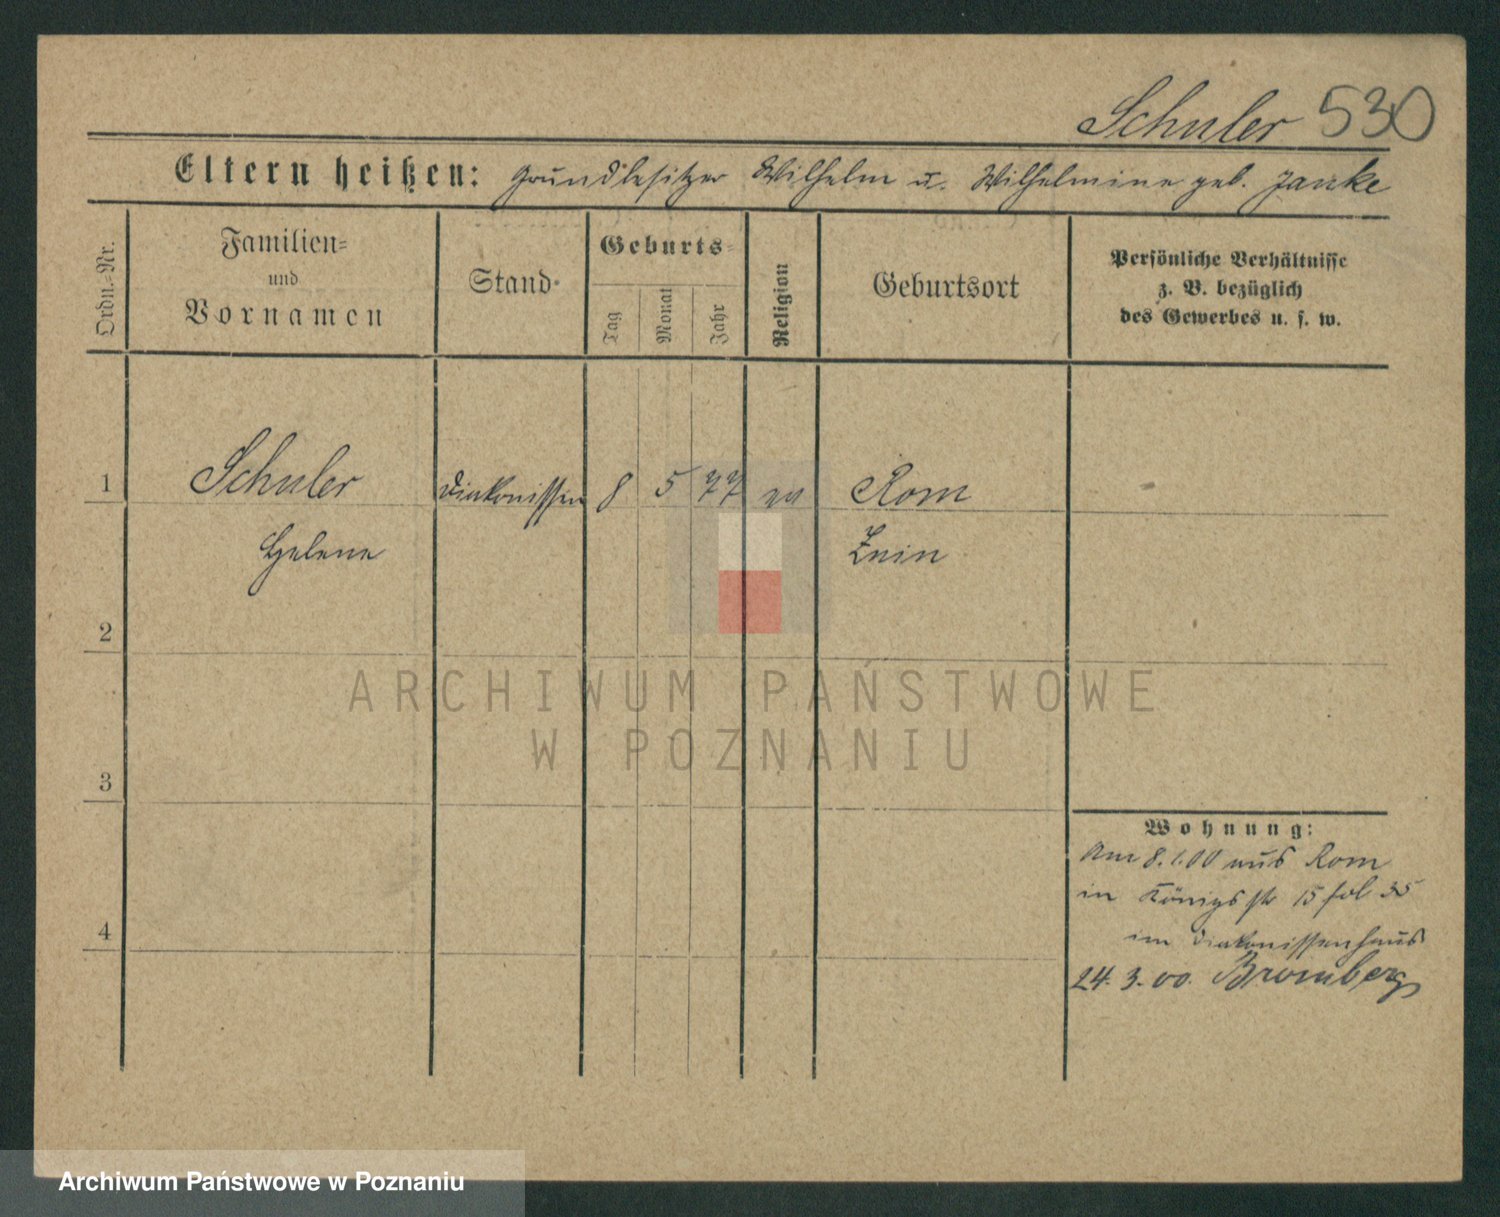 Schuler 530
Eltern heißen: Grundbesitzer Wilhelm u. Wilhelmine geb. Janke
Ordn.-Nr.
Familien-
und
Vornamen
Stand
Geburts-
Tag
Monat
Jahr
Religion
Geburtsort
Persönliche Verhältnisse
z. B. bezüglich
des Gewerbes u. s. w.
1 Schuler Diakonissin 8 5 77 ev Rom
Helene Znin
2
3
4
Wohnung:
Am 8.1.00 aus Rom
in Königsstr 15 fol 35
im Diakonissenhaus
24.3.00. Bromberg
ARCHIWUM PAŃSTWOWE
W POZNANIU
Archiwum Państwowe w Poznaniu